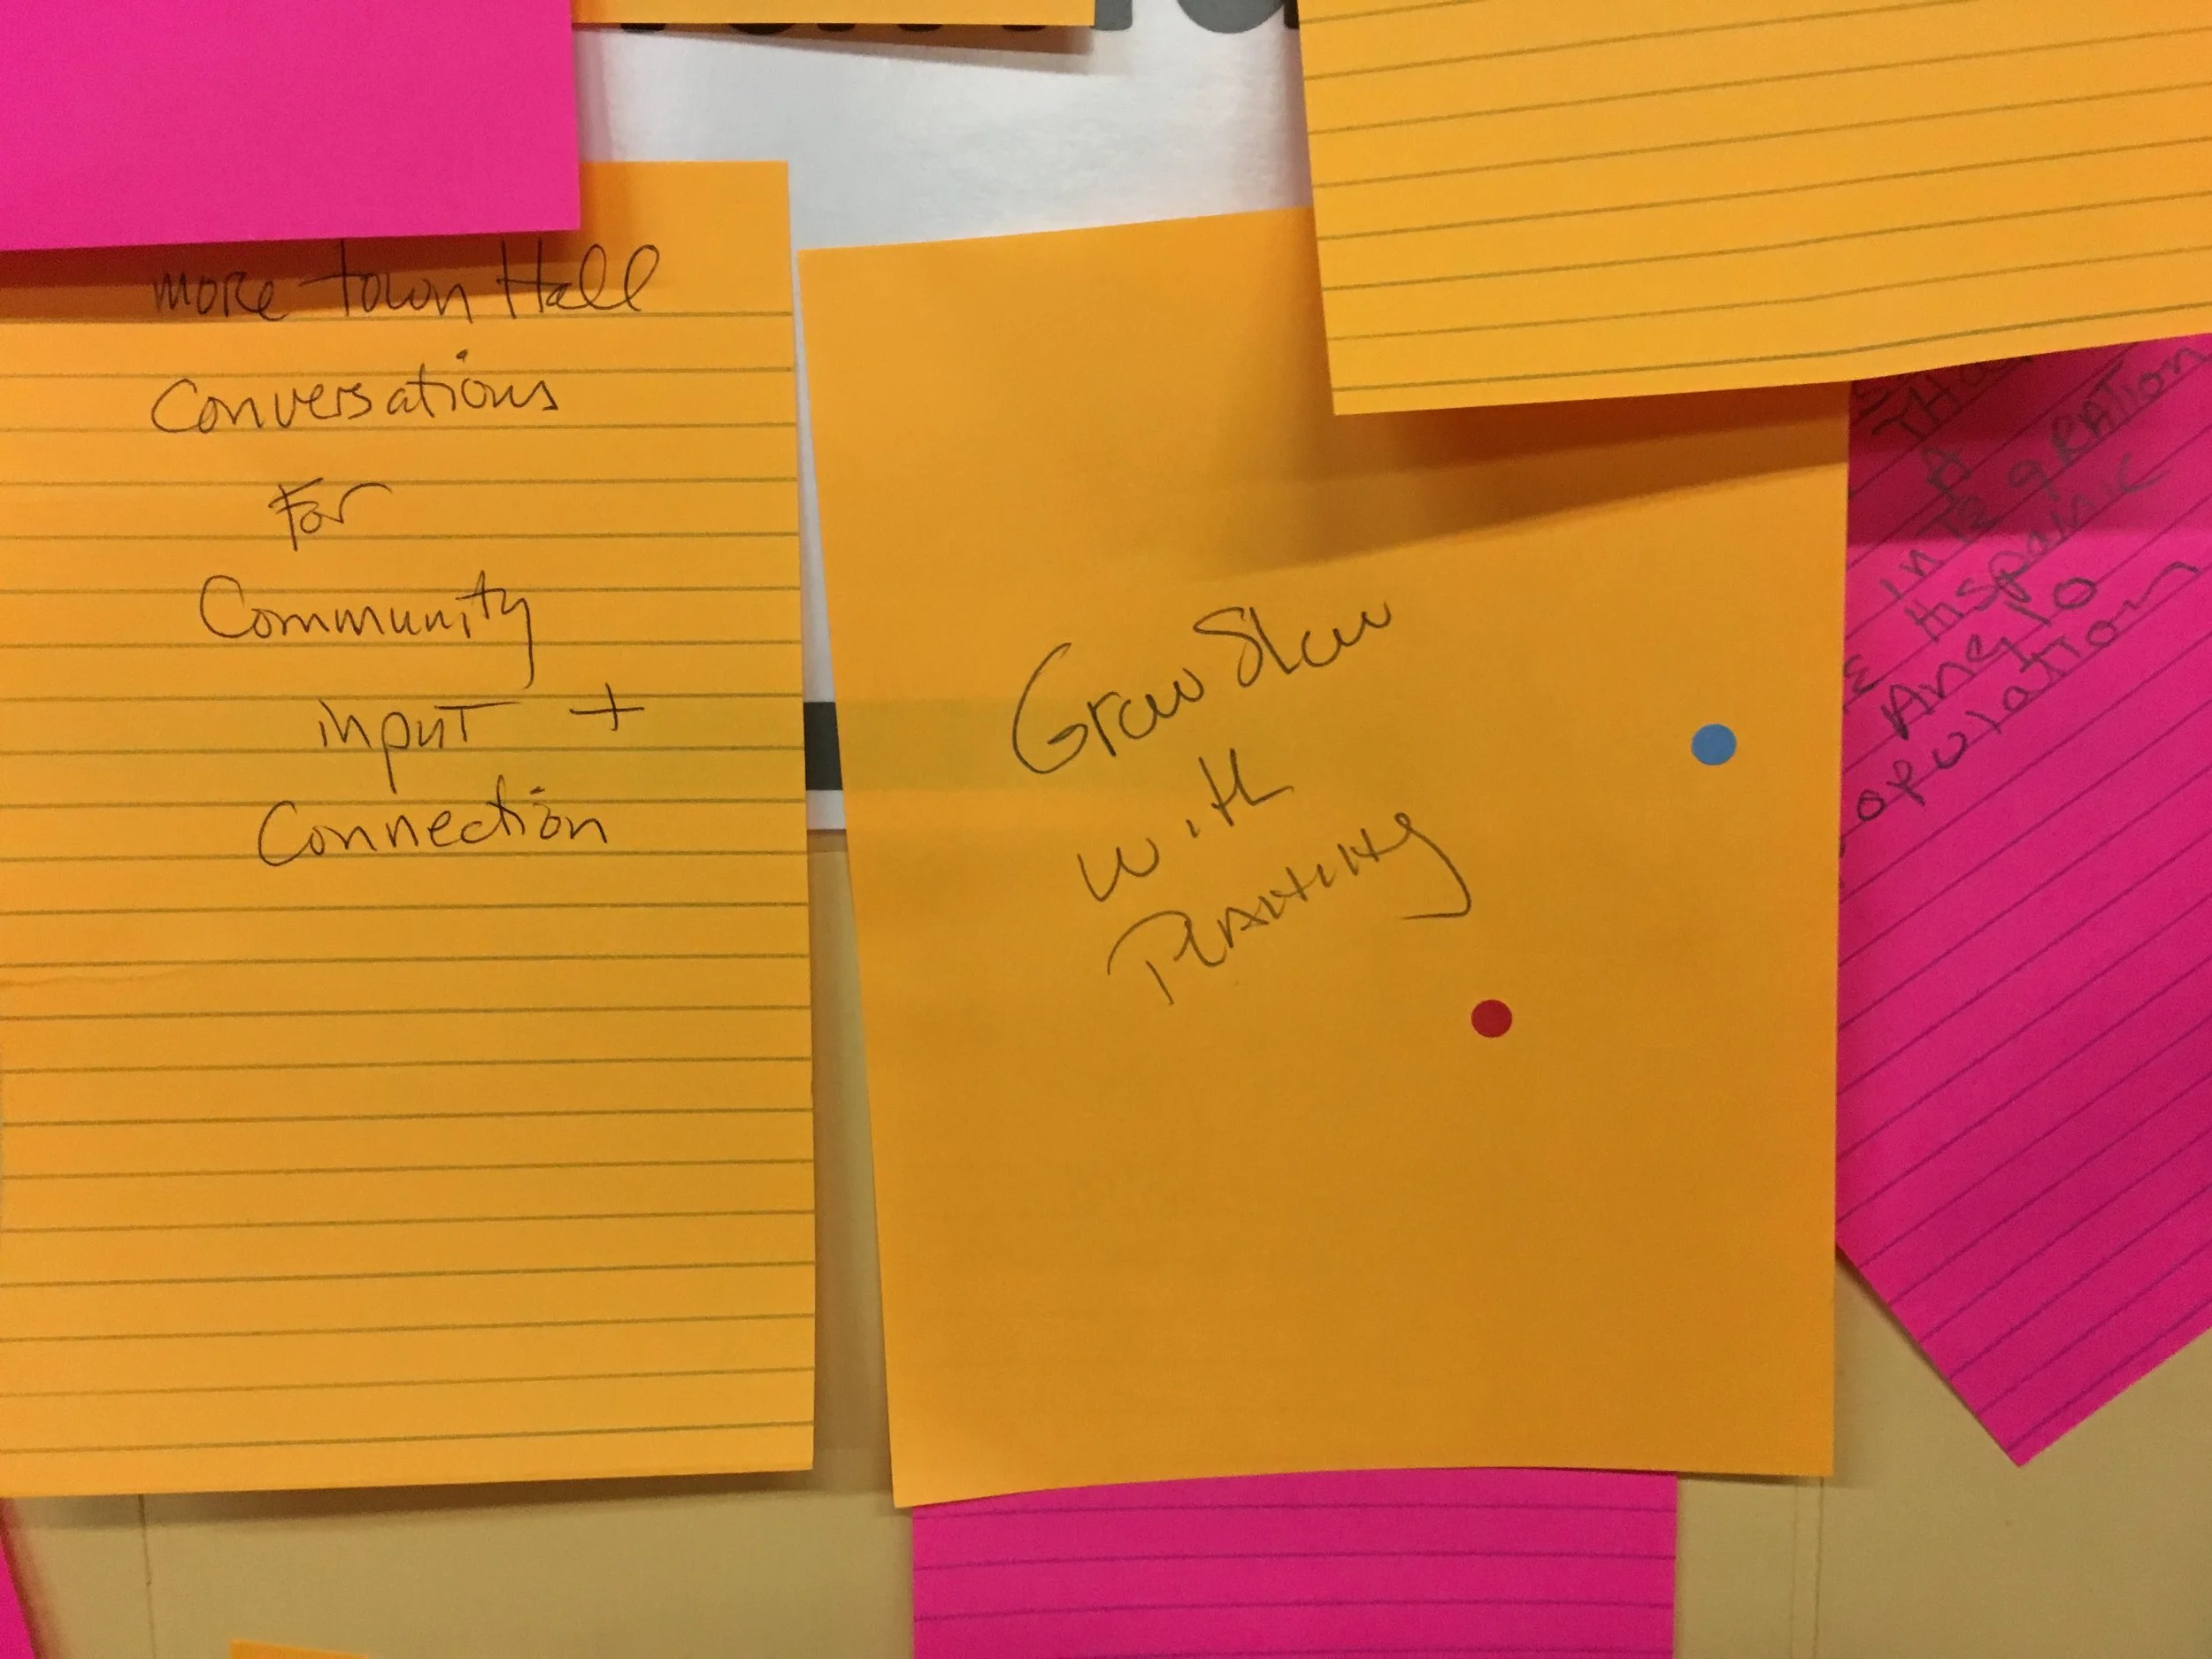 more town Hall
Conversations
For
Community
input +
Connection
Grow Slow
with
Planning
A
integration
Hispanic
Anglo